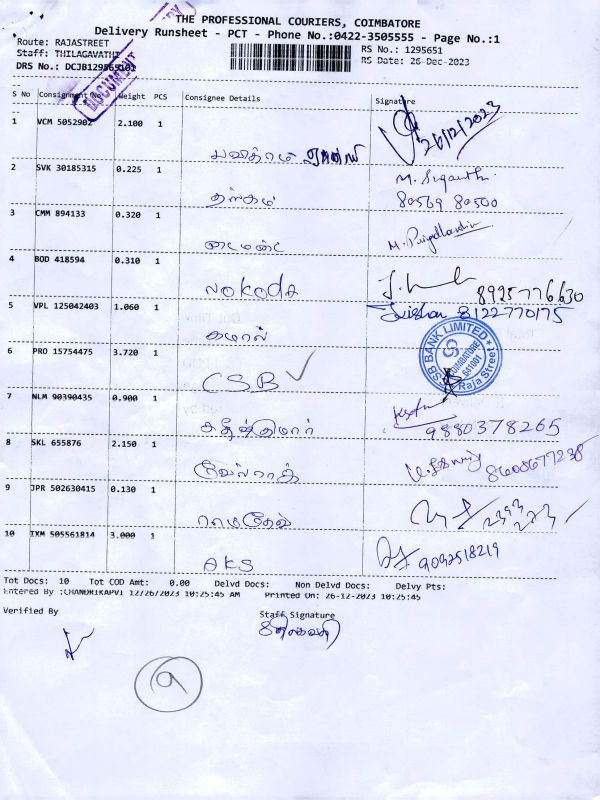 THE PROFESSIONAL COURIERS, COIMBATORE
Delivery Runsheet - PCT - Phone No.:0422-3505555 - Page No.:1
Route: RAJASTREET
RS No.: 1295651
Staff: THILAGAVATHI
RS Date: 26-Dec-2023
DRS No.: DCJB129565101
DOCUMENT
S No Consignment No. Weight PCS Consignee Details Signature
1 VCM 5052902 2.100 1
26/12/2023
2 SVK 30185315 0.225 1
80569 80500
3 CMM 894133 0.320 1 டைமண்ட்
4 BOD 418594 0.310 1 Nokoda
8925776630
5 VPL 125042403 1.060 1 கமால்
8122770175
6 PRO 15754475 3.720 1 CSB
CSB BANK LIMITED
COIMBATORE
641001
Raja Street
7 NLM 90390435 0.900 1 சுதீஷ்குமார்
9880378265
8 SKL 655876 2.150 1
9 JPR 502630415 0.130 1 ராமதேவ்
10 IXM 505561814 3.000 1 AKS
9092518219
Tot Docs: 10 Tot COD Amt: 0.00 Delvd Docs: Non Delvd Docs: Delvy Pts:
Entered By :CHANDRIKAPVI 12/26/2023 10:25:45 AM Printed On: 26-12-2023 10:25:45
Verified By
Staff Signature
9